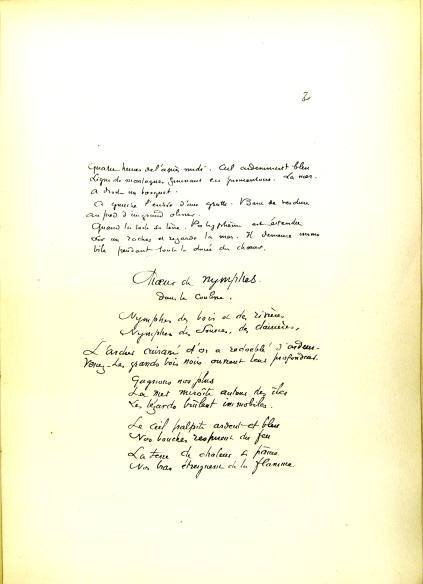 2
Quatre heures de l'après midi. Ciel ardemment bleu
Ligne de montagnes finissant en promontoire. La mer.
A droite un bosquet.
A gauche l'entrée d'une grotte. Banc de verdure
au pied d'un grand
Quand la toile se lève. Polyphème est étendu
sur un rocher et regarde la mer. Il demeure immo
bile pendant toute la durée du chœur.
Chœur de nymphes.
dans la coulisse.
Nymphes des bois et des rivières
Nymphes des sources, des clairières,
L'archer cuirassé d'or a redoublé d'ardeur
Venez – Les grands bois noirs ouvrent leur profondeur.
Gagnons nos
La mer miroite autour des îles
Les lézards brûlent immobiles.
Le ciel palpite ardent et bleu
Nos bouches respirent du feu
La terre de chaleur se pâme
Nos bras étreignent de la flamme.